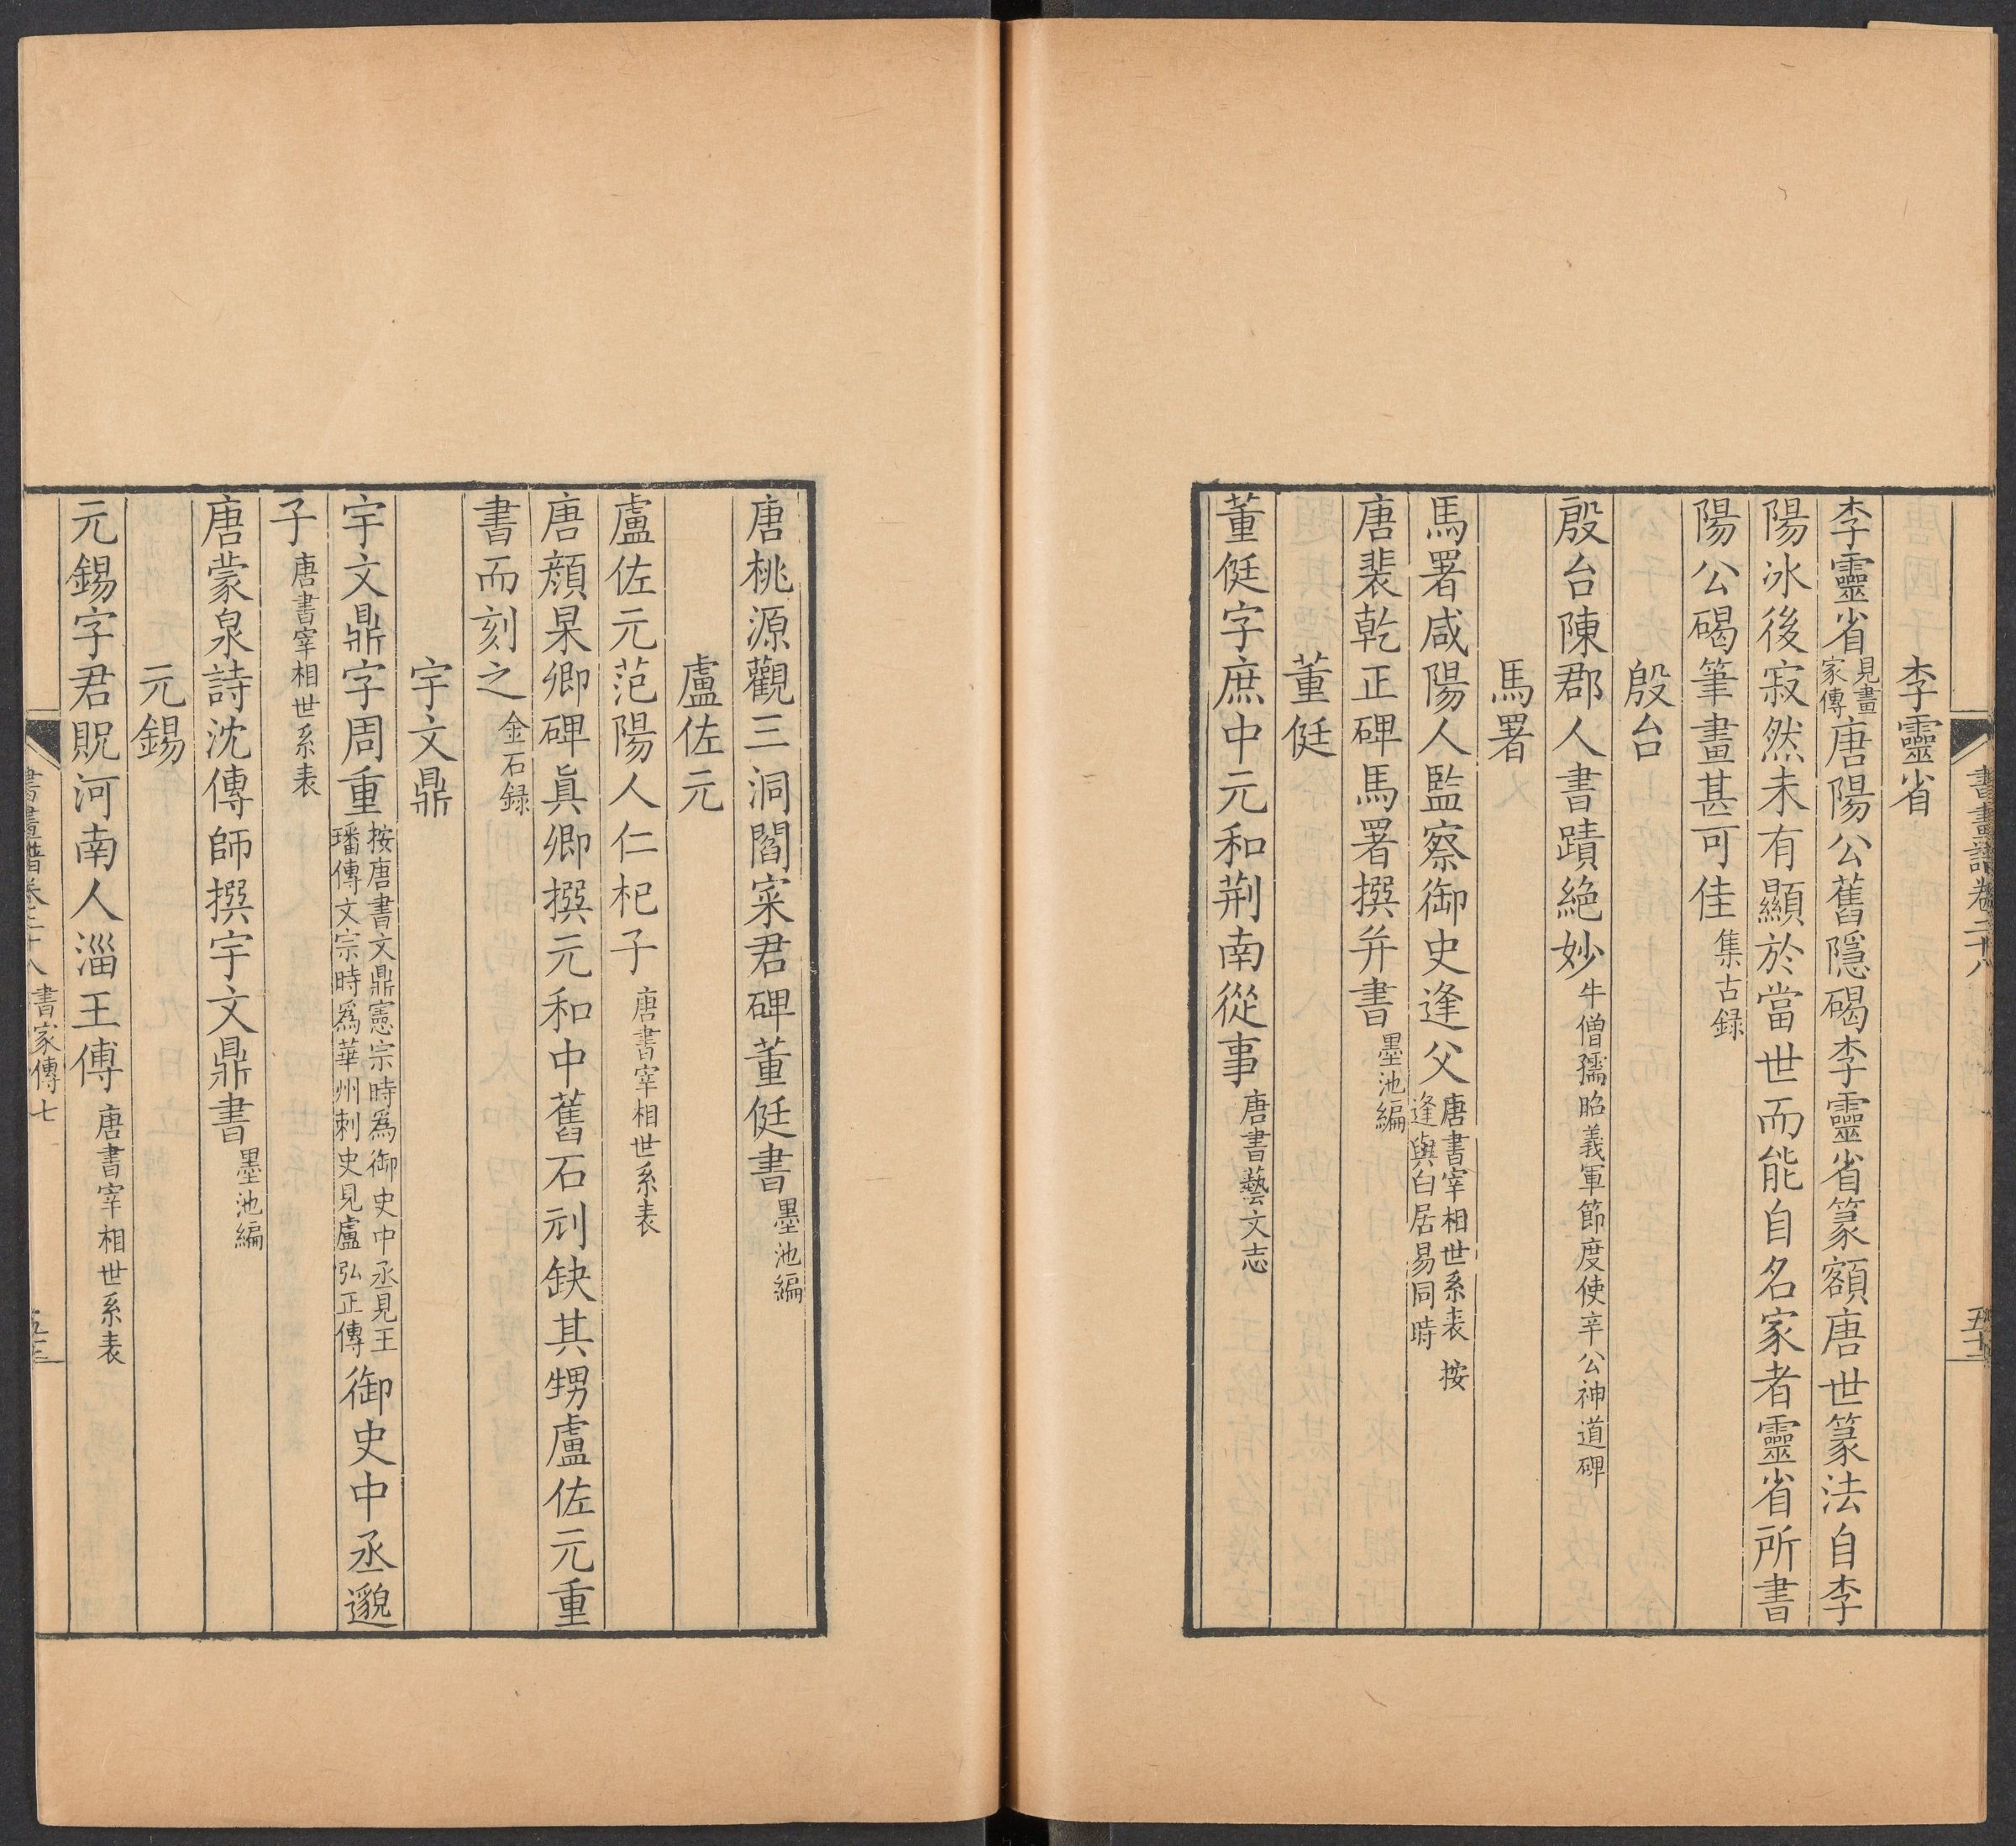 李靈省
李靈省見畫家傳唐陽公舊隱碣李靈省篆額唐世篆法自李
陽冰後寂然未有顯於當世而能自名家者靈省所書
陽公碣筆畫甚可佳集古録
殷台
殷台陳郡人書蹟絶妙牛僧孺昭義軍節度使辛公神道碑
馬署
馬署咸陽人監察御史逢父唐書宰相世系表 按逢與白居易同時
唐裴乾正碑馬署撰并書墨池編
董侹
董侹字庶中元和荆南從事唐書藝文志
唐桃源觀三洞閻寀君碑董侹書墨池編
盧佐元
盧佐元范陽人仁杞子唐書宰相世系表
唐顔杲卿碑眞卿撰元和中舊石刓缺其甥盧佐元重
書而刻之金石録
宇文鼎
宇文鼎字周重按唐書文鼎憲宗時爲御史中丞見王璠傳文宗時爲華州刺史見盧弘正傳御史中丞邈
子唐書宰相世系表
唐蒙泉詩沈傳師撰宇文鼎書墨池編
元錫
元錫字君貺河南人淄王傅唐書宰相世系表
書畫譜卷二十八 書家傳七